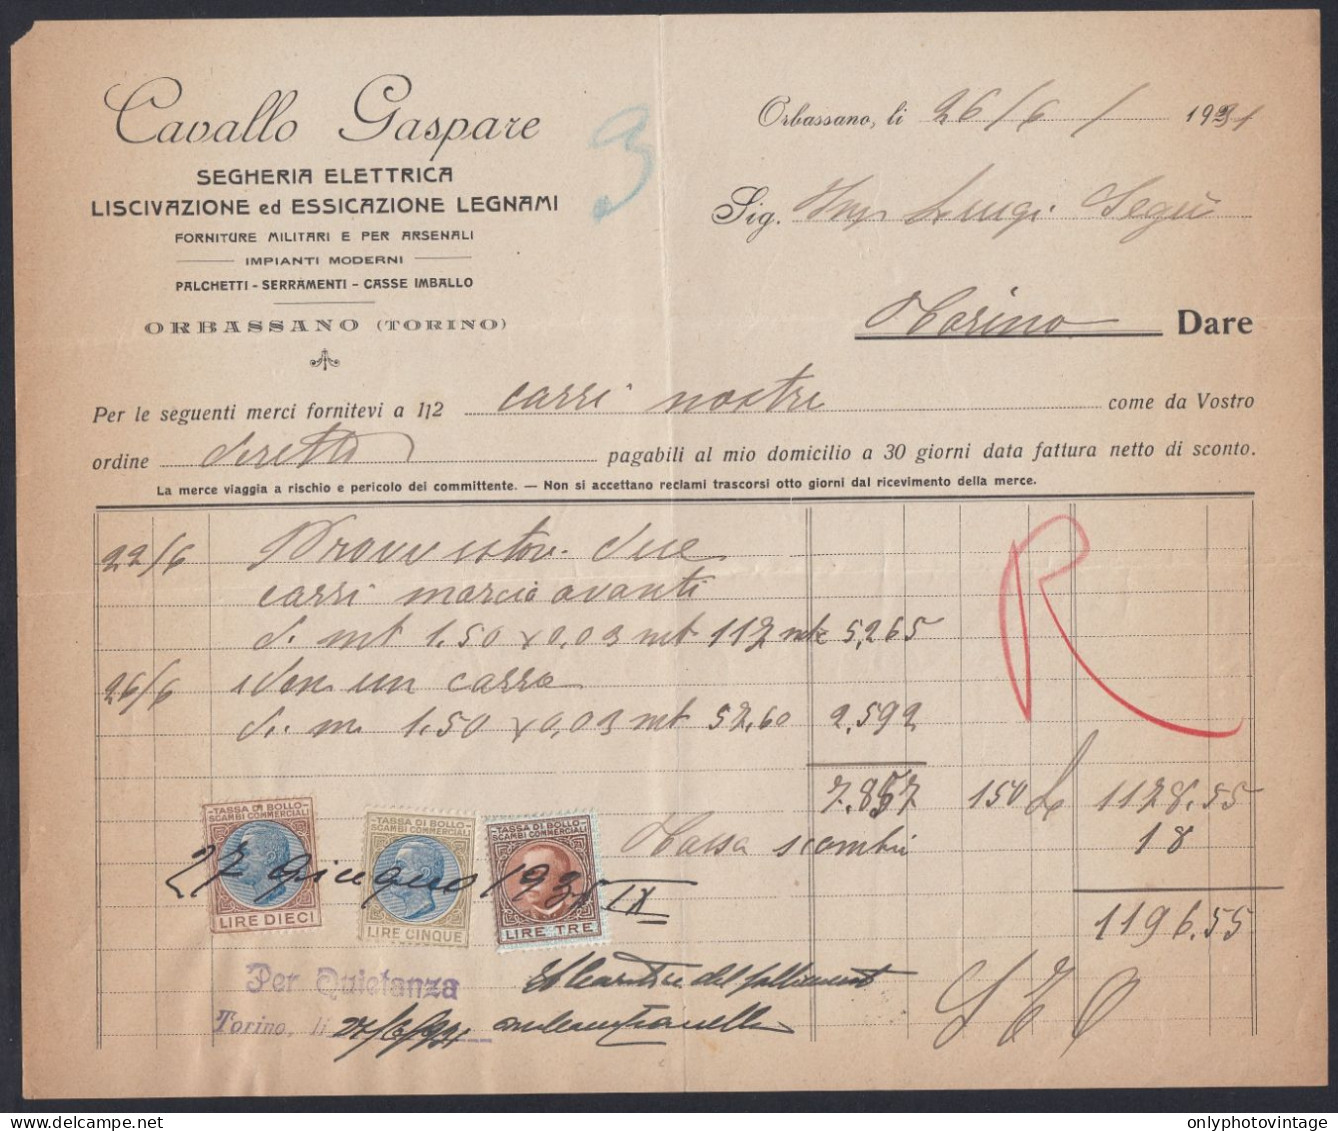 Cavallo Gaspare
SEGHERIA ELETTRICA
LISCIVAZIONE ed ESSICAZIONE LEGNAMI
FORNITURE MILITARI E PER ARSENALI
IMPIANTI MODERNI
PALCHETTI - SERRAMENTI - CASSE IMBALLO
ORBASSANO (TORINO)
3
Orbassano, li 26/6/ 1931
Sig. Luigi Segù
Torino Dare
Per le seguenti merci fornitevi a 1|2 carri nostri come da Vostro
ordine diretto pagabili al mio domicilio a 30 giorni data fattura netto di sconto.
La merce viaggia a rischio e pericolo dei committente. — Non si accettano reclami trascorsi otto giorni dal ricevimento della merce.
22/6 due
carri marcia avanti
di mt 1.50 x 0,03 mt 117 5,265
26/6 Idem un carro
di m. 1.50 x 0,03 mt 57,60 2,592
7.857 150 L 1178.55
Tassa scambi 18
1196.55
R
TASSA DI BOLLO
SCAMBI COMMERCIALI
LIRE DIECI
TASSA DI BOLLO
SCAMBI COMMERCIALI
LIRE CINQUE
TASSA DI BOLLO
SCAMBI COMMERCIALI
LIRE TRE
27 Giugno 1931 IX
Per Quietanza
Torino, li 27/6/931
onlyphotovintage.com